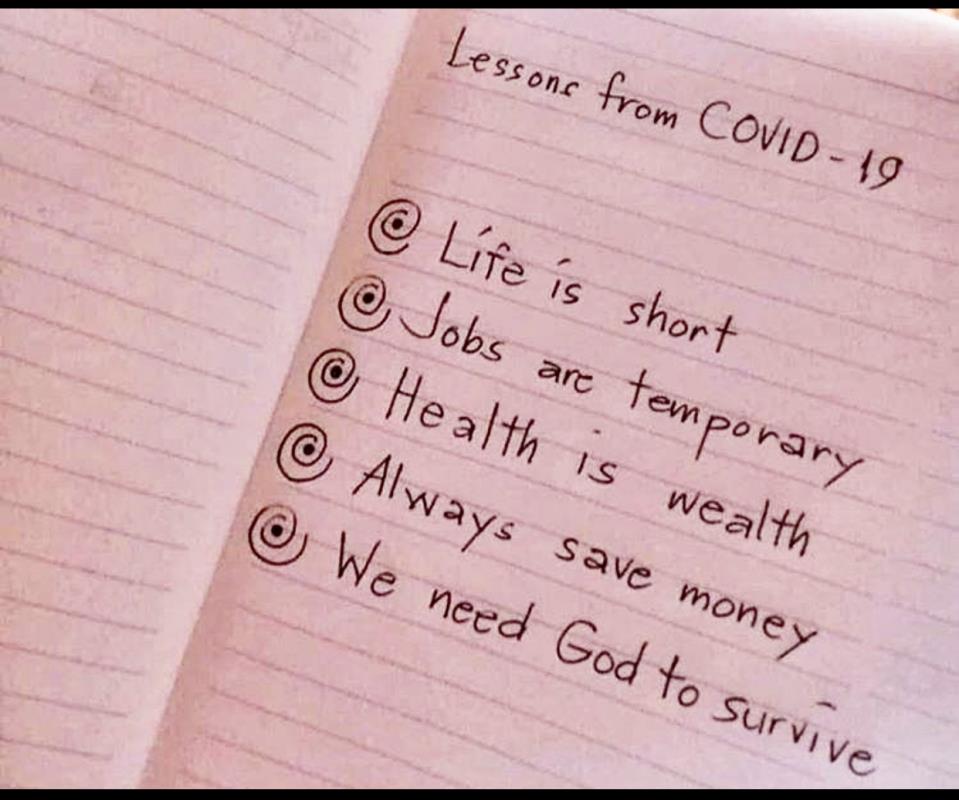 Lessons from COVID-19
Life is short
Jobs are temporary
Health is wealth
Always save money
We need God to survive